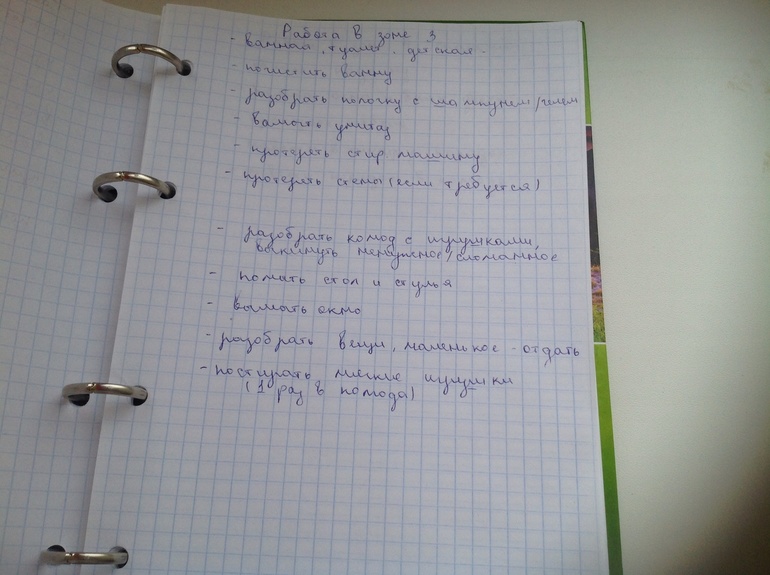 Работа в зоне 3
- ванная, туалет. детская.
- почистить ванну
- разобрать полочку с шампунем/гелем
- вымыть унитаз
- протереть стир машину
- протереть стены (если требуется)
- разобрать комод с игрушками,
выкинуть ненужное/сломанное
- помыть стол и стулья
- вымыть окно
- разобрать вещи, маленькое - отдать
- постирать мягкие игрушки
(1 раз в полгода)